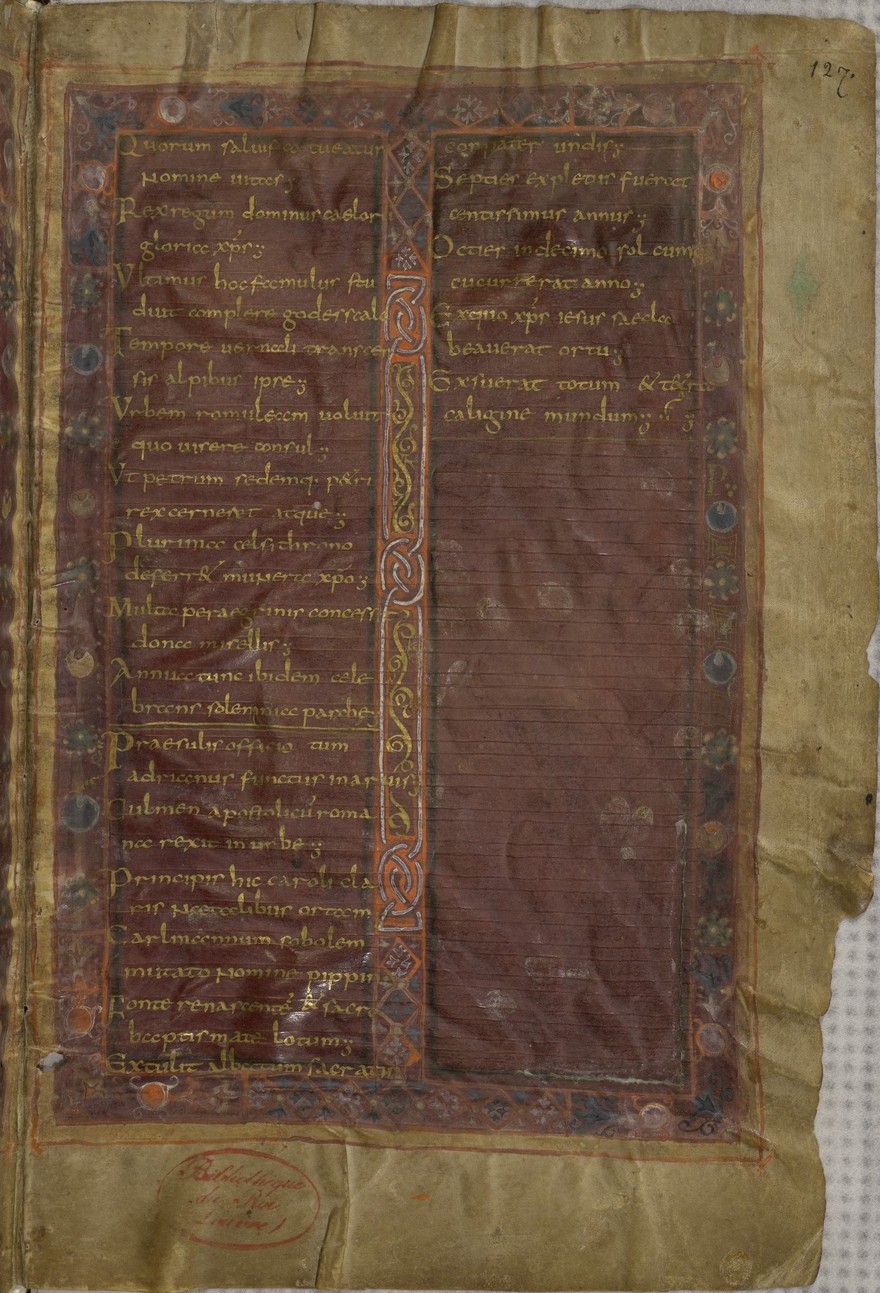 127.
Quorum saluifico tueatur
nomine uitas;
Rex regum dominus caelor
gloria xp̄s;
Vltimus hoc famulus stu
duit complere godesscalc
Tempore uernali transcen
sis alpibus ipse;
Vrbem romuleam uoluit
quo uisere consul;
Vt petrum sedemq; petri
rex cerneret atque;
Plurima celsithrono
deferret munera xp̄o;
Multa peraegrinis concessit
dona misellis;
Annua tunc ibidem cele
brans solemnia paschę
Praesulis officio tum
adrianus functus in aruis;
Culmen apostolicū roma
na rexit in urbe;
Principis hic caroli cla
ris natalibus ortam
Carlmannum sobolem
mutato nomine pippin
Fonte renascentē & sacro
baptismate lotum;
Extulit albatum sacratis
conpater undis;
Septies expletus fuerat
centissimus annus;
Octies in decimo sol cum
cucurrerat anno;
Ex quo xp̄s iesus saecla
beauerat ortu;
Exsuerat totum & tetra
caligine mundum;
Bibliothèque
du Roi
Louvre